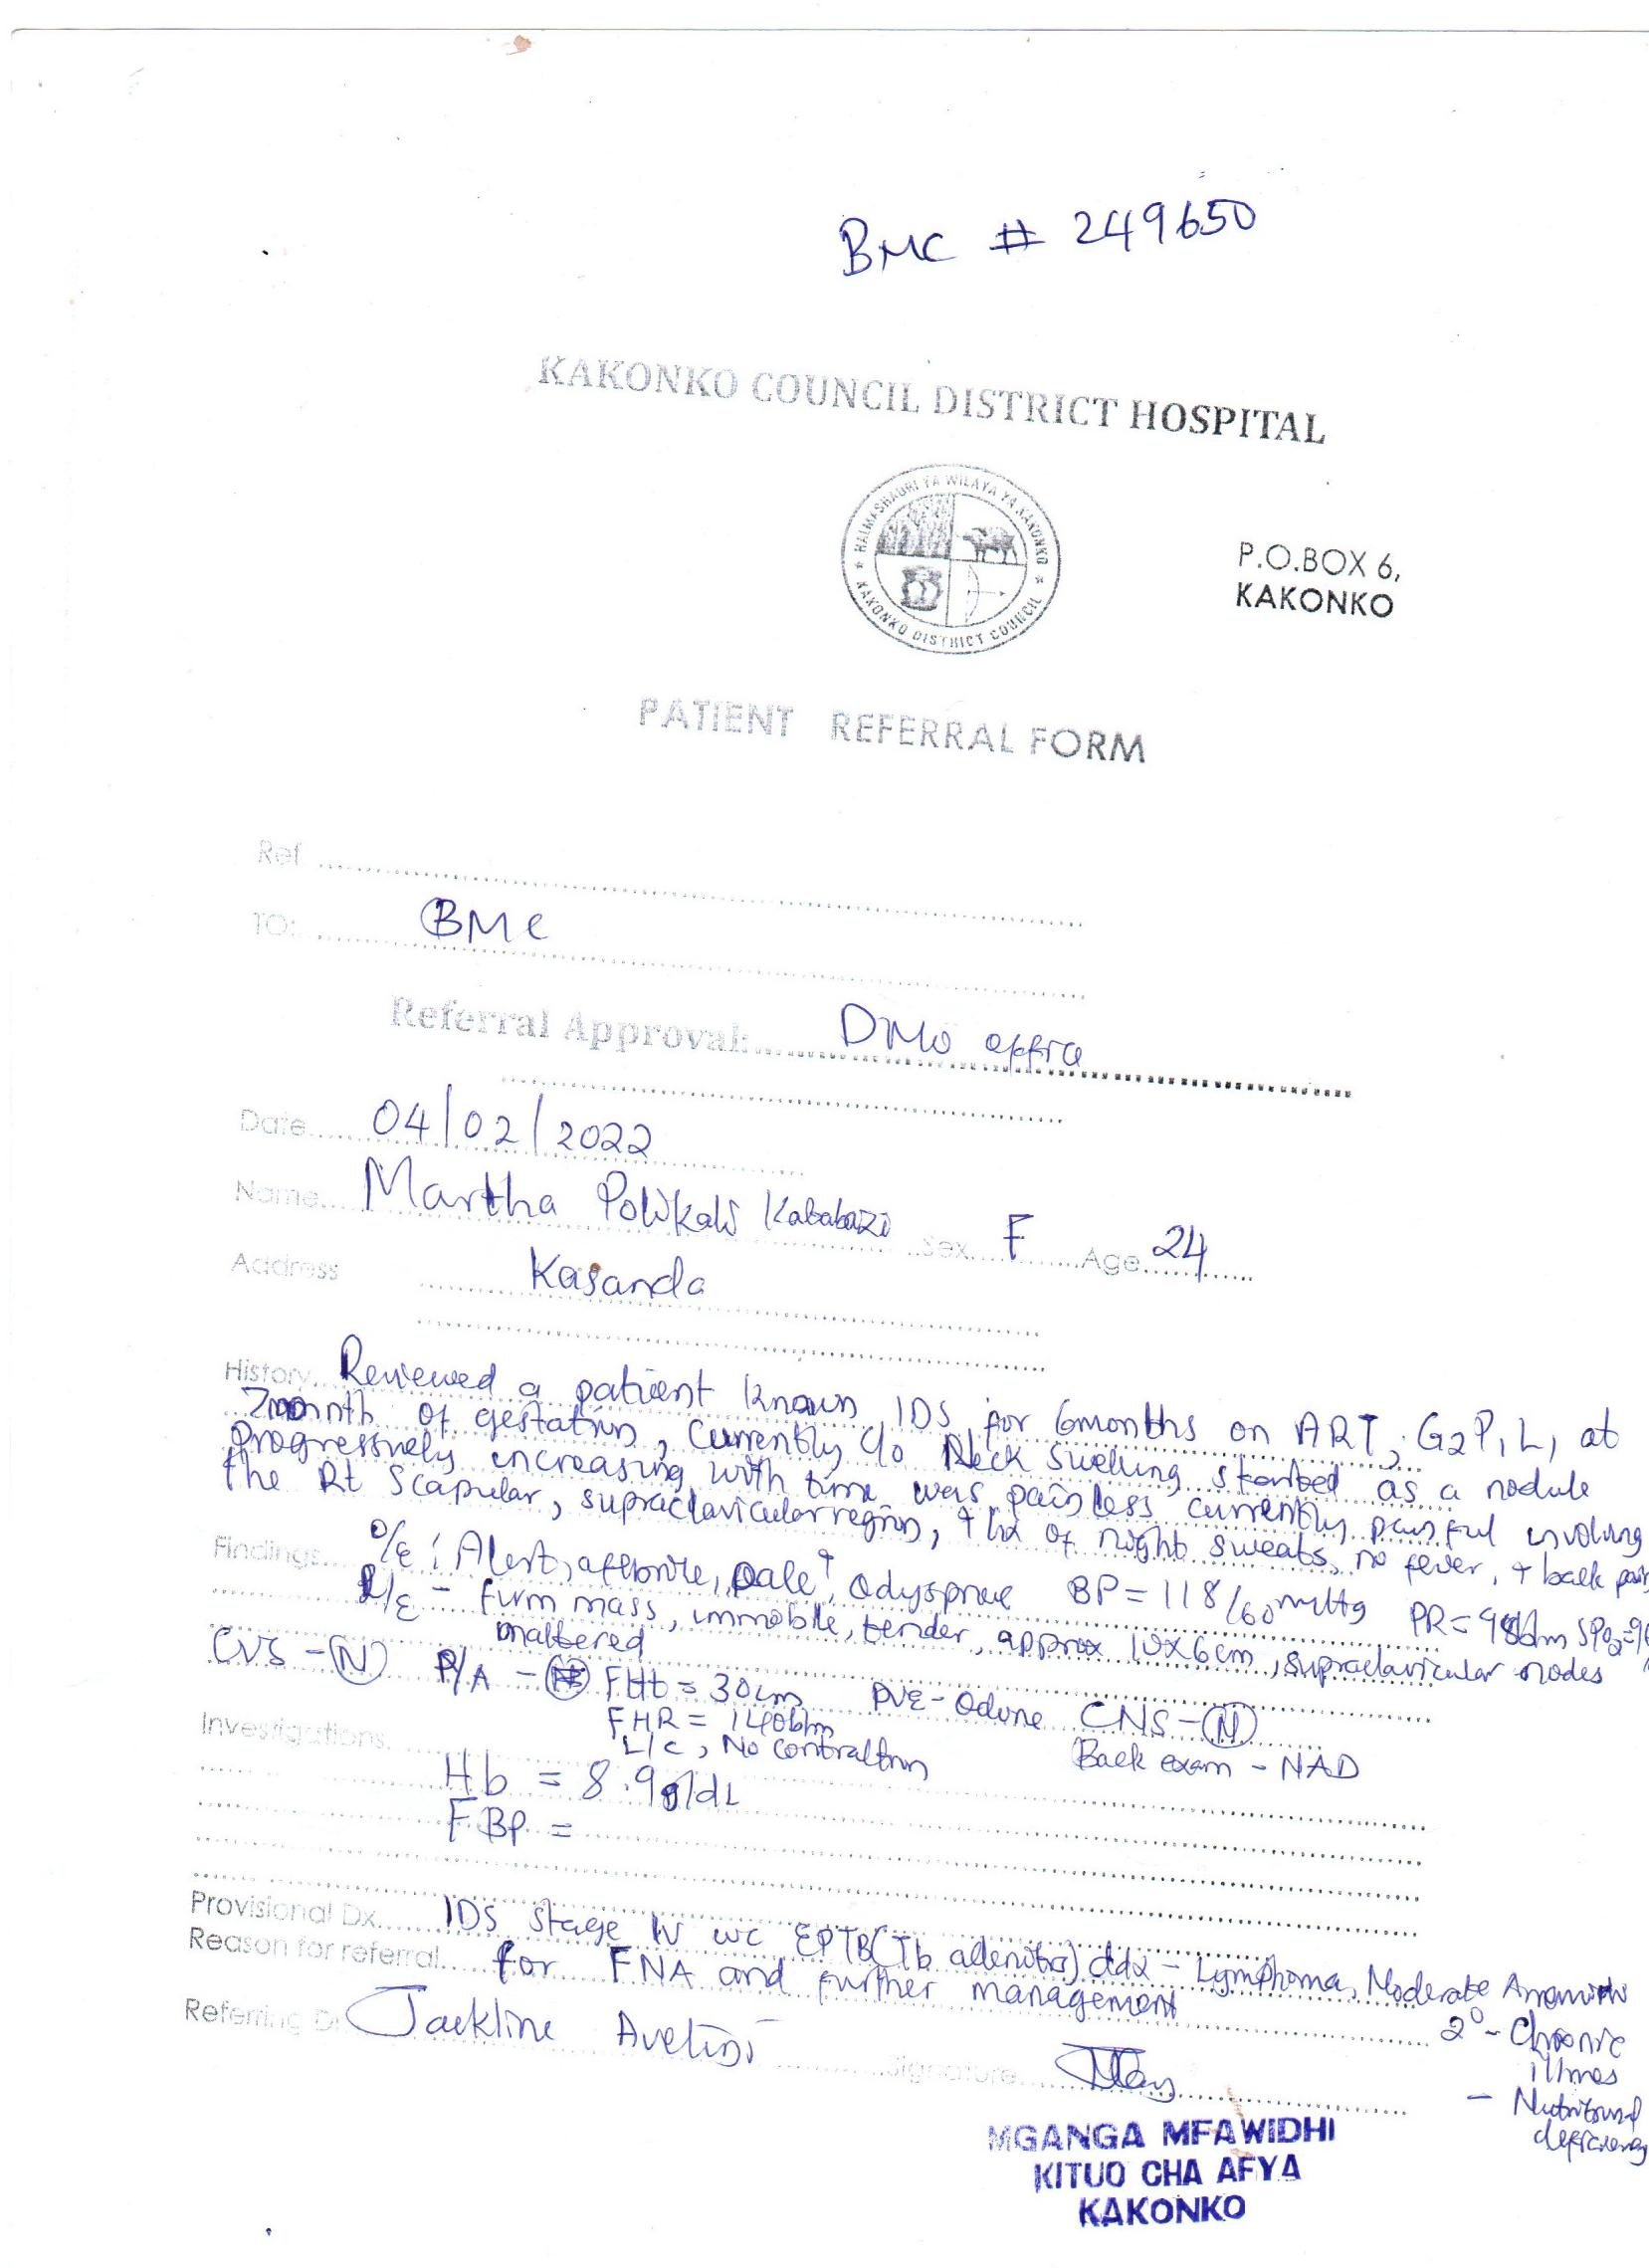 BMC # 249650
KAKONKO COUNCIL DISTRICT HOSPITAL
HALMASHAURI YA WILAYA YA KAKONKO
KAKONKO DISTRICT COUNCIL
P.O.BOX 6,
KAKONKO
PATIENT REFERRAL FORM
Ref
TO: BMC
Referral Approval: DMO office
Date 04/02/2022
Name Martha Polikali Kababazi Sex F Age 24
Address Kasanda
History Reviewed a patient known IDS for 6months on ART, G2P1L1 at
7month of gestation, currently c/o Neck swelling started as a nodule
progressively increasing with time was painless currently painful involving
the Rt Scapular, supraclavicular region, + hx of night sweats, no fever, + back pain
Findings O/E: Alert, afebrile, pale+, dyspnoe BP = 118/60 mmHg PR = SPO2 =
L/E - firm mass, immobile, tender, approx 10x6cm, supraclavicular nodes
matted
CVS - N P/A - FHt = 30cm PVE - CNS - N
FHR = 140b/m
L/c, No contraction Back exam - NAD
Investigations
Hb = 8.9g/dL
FBP =
Provisional Dx IDS stage IV wc EPTB (Tb adenitis) ddx - Lymphoma, Moderate Anaemia
2° - Chronic
illness
- Nutritional
deficiency
Reason for referral for FNA and further management
Referring Dr Jackline Avelini Signature
MGANGA MFAWIDHI
KITUO CHA AFYA
KAKONKO